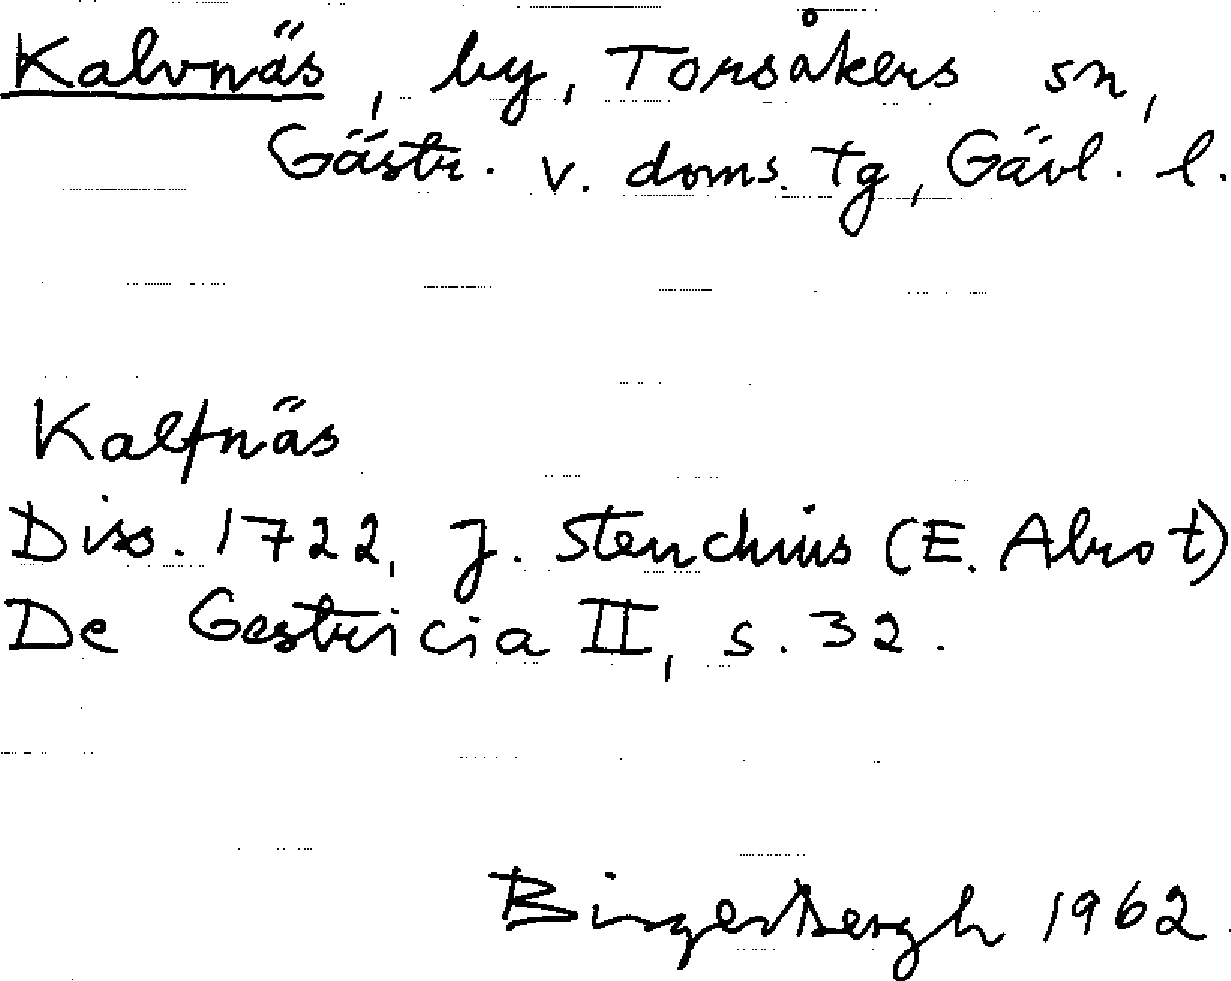 Kalvnäs, by, Torsåkers sn,
Gästr. v. doms. tg, Gävl. l.
Kalfnäs
Diss. 1722, J. Stenchius (E. Alrot)
De Gestricia II, s. 32.
Birger Bergh 1962